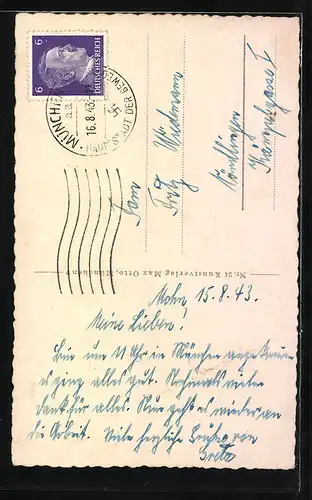 6 DEUTSCHES REICH 6
MÜNCHEN
16.8.43
HAUPTSTADT DER BEWEGUNG
Fam.
Fritz Wiedemann
Nördlingen
Nr. 24 Kunstverlag Max Otto, München 9
15.8.43.
Meine Lieben!
Bin um 11 Uhr in München angekommen
es ging alles gut. Nochmals vielen
Dank für alles. Nun geht es wieder an
die Arbeit. Viele herzliche Grüße von
Greta